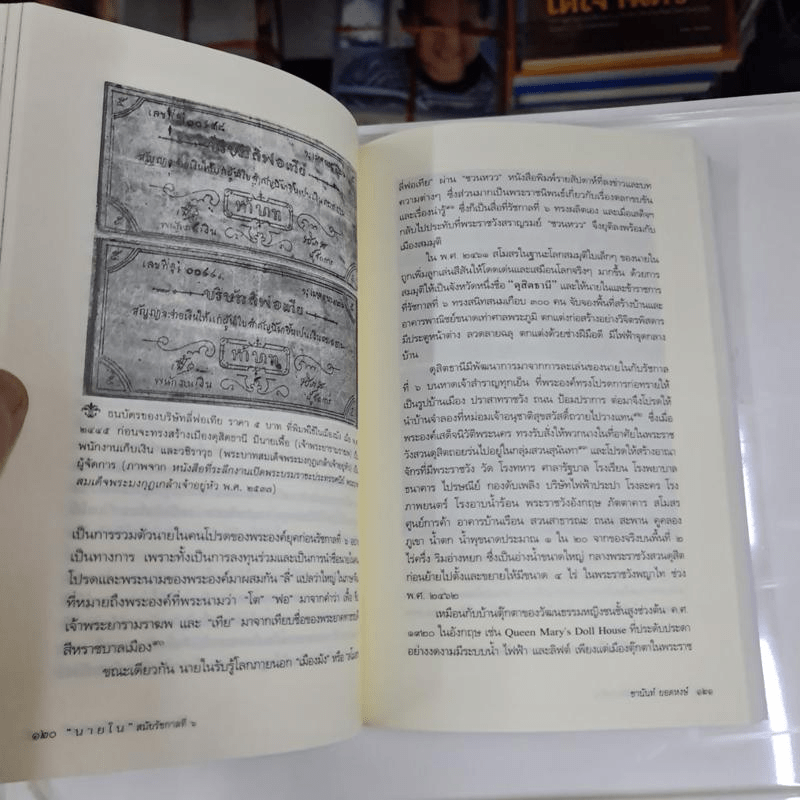 เลขที่ ๐๐๖๙๘
บริษัทลี่ฟอเทีย
ห้าบาท
เลขที่
บริษัทลี่ฟอเทีย
ห้าบาท
พนักงานเงิน
ธนบัตรของบริษัทลี่ฟอเทีย ราคา ๕ บาท ที่พิมพ์ใช้ในเมืองมัง เมื่อ พ.ศ.
๒๔๔๕ ก่อนจะทรงสร้างเมืองดุสิตธานี มีนายเฟื้อ (เจ้าพระยารามราฆพ) เป็น
พนักงานเก็บเงิน และวชิราวุธ (พระบาทสมเด็จพระมงกุฎเกล้าเจ้าอยู่หัว) เป็น
ผู้จัดการ (ภาพจาก หนังสือที่ระลึกงานเปิดพระบรมราชะประทรรศนีย์
สมเด็จพระมงกุฎเกล้าเจ้าอยู่หัว พ.ศ. ๒๕๓๓)
เป็นการรวมตัวนายในคนโปรดของพระองค์ยุคก่อนรัชกาลที่ ๖ อย่าง
เป็นทางการ เพราะทั้งเป็นการลงทุนร่วมและเป็นการนำชื่อนายใน
โปรดและพระนามของพระองค์มาผสมกัน "ลี่" แปลว่าใหญ่
ที่หมายถึงพระองค์ที่พระนามว่า "โต" "ฟอ" มาจากคำว่า เฟื้อ
เจ้าพระยารามราฆพ และ "เทีย" มาจากเทียบชื่อของพระยา
สีหราชบาลเมือง
ขณะเดียวกัน นายในรับรู้โลกภายนอก "เมืองมัง" หรือ
๑๒๐ "นายใน" สมัยรัชกาลที่ ๖
ลี่ฟอเทีย" ผ่าน "ชวนหวว" หนังสือพิมพ์รายสัปดาห์ที่ลงข่าวและบท
ความต่างๆ ซึ่งส่วนมากเป็นพระราชนิพนธ์เกี่ยวกับเรื่องตลกขบขัน
และเรื่องน่ารู้ ซึ่งก็เป็นสื่อที่รัชกาลที่ ๖ ทรงผลิตเอง และเมื่อเสด็จฯ
กลับไปประทับที่พระราชวังสราญรมย์ "ชวนหวว" จึงยุติลงพร้อมกับ
เมืองสมมุติ
ใน พ.ศ. ๒๔๖๑ สโมสรในฐานะโลกสมมุติใบเล็กๆ ของนายใน
ถูกเพิ่มลูกเล่นสีสันให้โดดเด่นและเสมือนโลกจริงๆ มากขึ้น ด้วยการ
สมมุติให้เป็นจังหวัดหนึ่งชื่อ "ดุสิตธานี" และให้นายในและข้าราชการ
ที่รัชกาลที่ ๖ ทรงสนิทสนมเกือบ ๓๐๐ คน จับจองพื้นที่สร้างบ้านและ
อาคารพาณิชย์ขนาดเท่าศาลพระภูมิ ตกแต่งก่อสร้างอย่างวิจิตรพิสดาร
มีประตูหน้าต่าง ลวดลายฉลุ ตกแต่งด้วยช่างฝีมือดี มีไฟฟ้าจุดกลาง
บ้าน
ดุสิตธานีมีพัฒนาการมาจากการละเล่นของนายในกับรัชกาล
ที่ ๖ บนหาดเจ้าสำราญทุกเย็น ที่พระองค์ทรงโปรดการก่อทรายให้
เป็นรูปบ้านเมือง ปราสาทราชวัง ถนน ป้อมปราการ ต่อมาจึงโปรดให้
นำบ้านจำลองที่หม่อมเจ้าอนุชาติศุขสวัสดิ์ถวายไปวางแทน ซึ่งเมื่อ
พระองค์เสด็จนิวัติพระนคร ทรงรับสั่งให้พวกนางในที่อาศัยในพระราช
วังสวนดุสิตถอยร่นไปอยู่ในกลุ่มสวนสุนันทา และโปรดให้สร้างอาณา
จักรที่มีพระราชวัง วัด โรงทหาร ศาลารัฐบาล โรงเรียน โรงพยาบาล
ธนาคาร ไปรษณีย์ กองดับเพลิง บริษัทไฟฟ้าประปา โรงละคร โรง
ภาพยนตร์ โรงอาบน้ำร้อน พระราชวังอังกฤษ ภัตตาคาร สโมสร
ศูนย์การค้า อาคารบ้านเรือน สวนสาธารณะ ถนน สะพาน คูคลอง
ภูเขา น้ำตก น้ำพุขนาดประมาณ ๑ ใน ๒๐ จากของจริงบนพื้นที่ ๒
ไร่ครึ่ง ริมอ่างหยก ซึ่งเป็นอ่างน้ำขนาดใหญ่ กลางพระราชวังสวนดุสิต
ก่อนย้ายไปตั้งและขยายให้มีขนาด ๔ ไร่ ในพระราชวังพญาไท ช่วง
พ.ศ. ๒๔๖๒
เหมือนกับบ้านตุ๊กตาของวัฒนธรรมหญิงชนชั้นสูงช่วงต้น ค.ศ.
๑๙๒๐ ในอังกฤษ เช่น Queen Mary's Doll House ที่ประดับประดา
อย่างงดงามมีระบบน้ำ ไฟฟ้า และลิฟต์ เพียงแต่เมืองตุ๊กตาในพระราช
ชานันท์ ยอดหงษ์ ๑๒๑